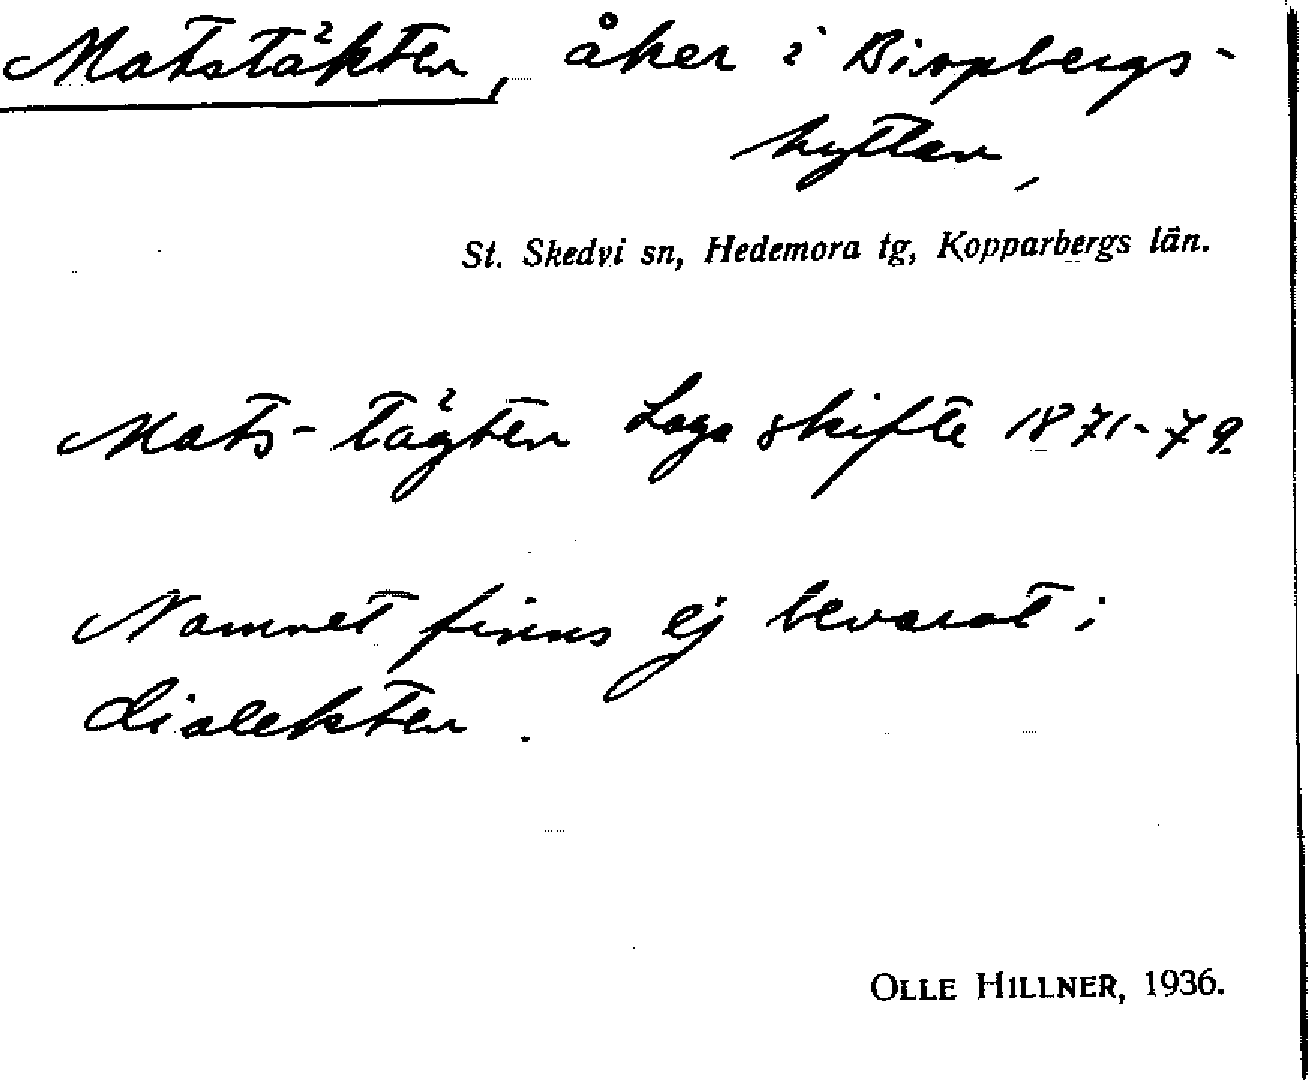 Matstäkten, åker i Bispbergs-
hyttan,
St. Skedvi sn, Hedemora tg, Kopparbergs län.
Mats-tägten Laga skifte 1871-79
Namnet finns ej bevarat i
dialekten.
OLLE HILLNER, 1936.